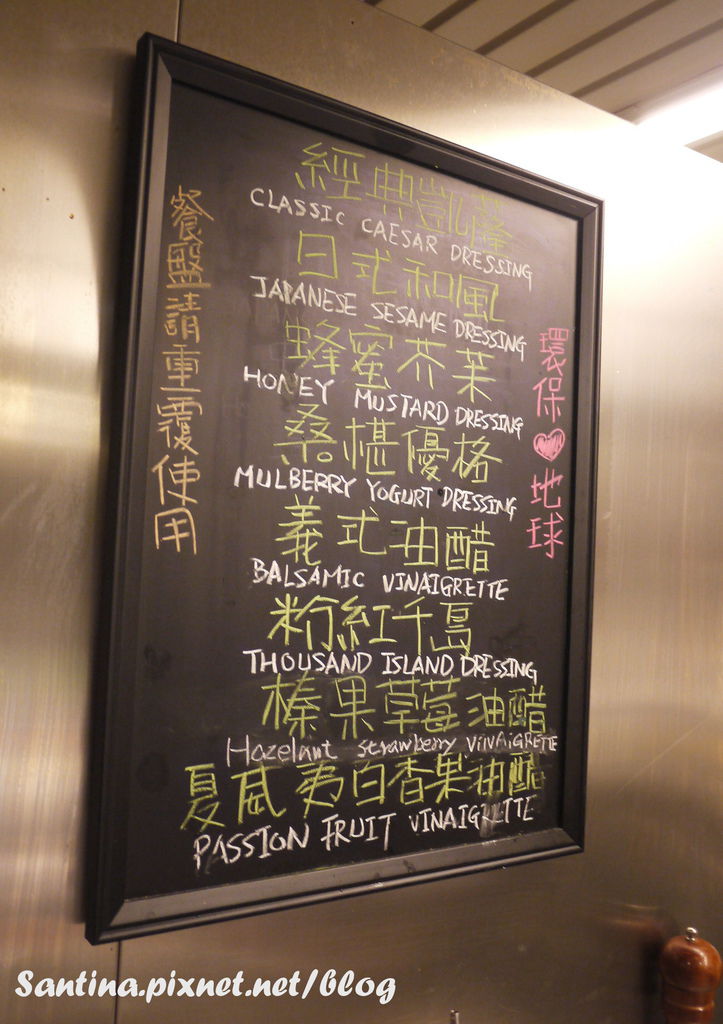 餐盤請重覆使用
經典凱薩
CLASSIC CAESAR DRESSING
日式和風
JAPANESE SESAME DRESSING
蜂蜜芥茉
HONEY MUSTARD DRESSING
桑椹優格
MULBERRY YOGURT DRESSING
義式油醋
BALSAMIC VINAIGRETTE
粉紅千島
THOUSAND ISLAND DRESSING
榛果草莓油醋
Hazelnut strawberry VINAIGRETTE
夏威夷百香果油醋
PASSION FRUIT VINAIGRETTE
環保♥地球
Santina.pixnet.net/blog